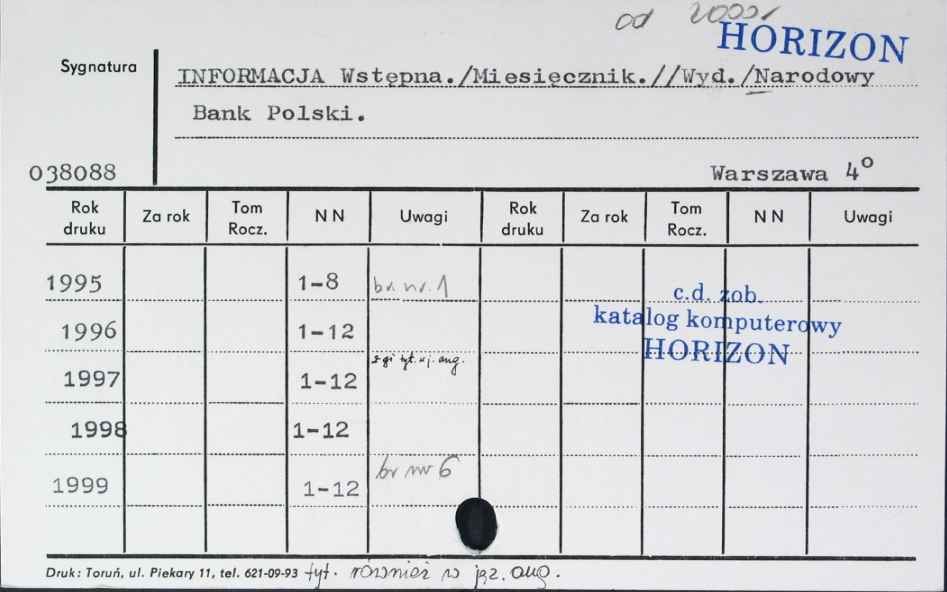 od 2000r
HORIZON
Sygnatura
INFORMACJA Wstępna./Miesięcznik.//Wyd./Narodowy
Bank Polski.
038088
Warszawa 4o
Rok druku Za rok Tom Rocz. NN Uwagi Rok druku Za rok Tom Rocz. NN Uwagi
1995 1-8 br. nr. 1
c.d. zob.
katalog komputerowy
HORIZON
1996 1-12
tyt. w j. ang.
1997 1-12
1998 1-12
1999 1-12 br nr 6
Druk: Toruń, ul. Piekary 11, tel. 621-09-93 tyt. również w jęz. ang.